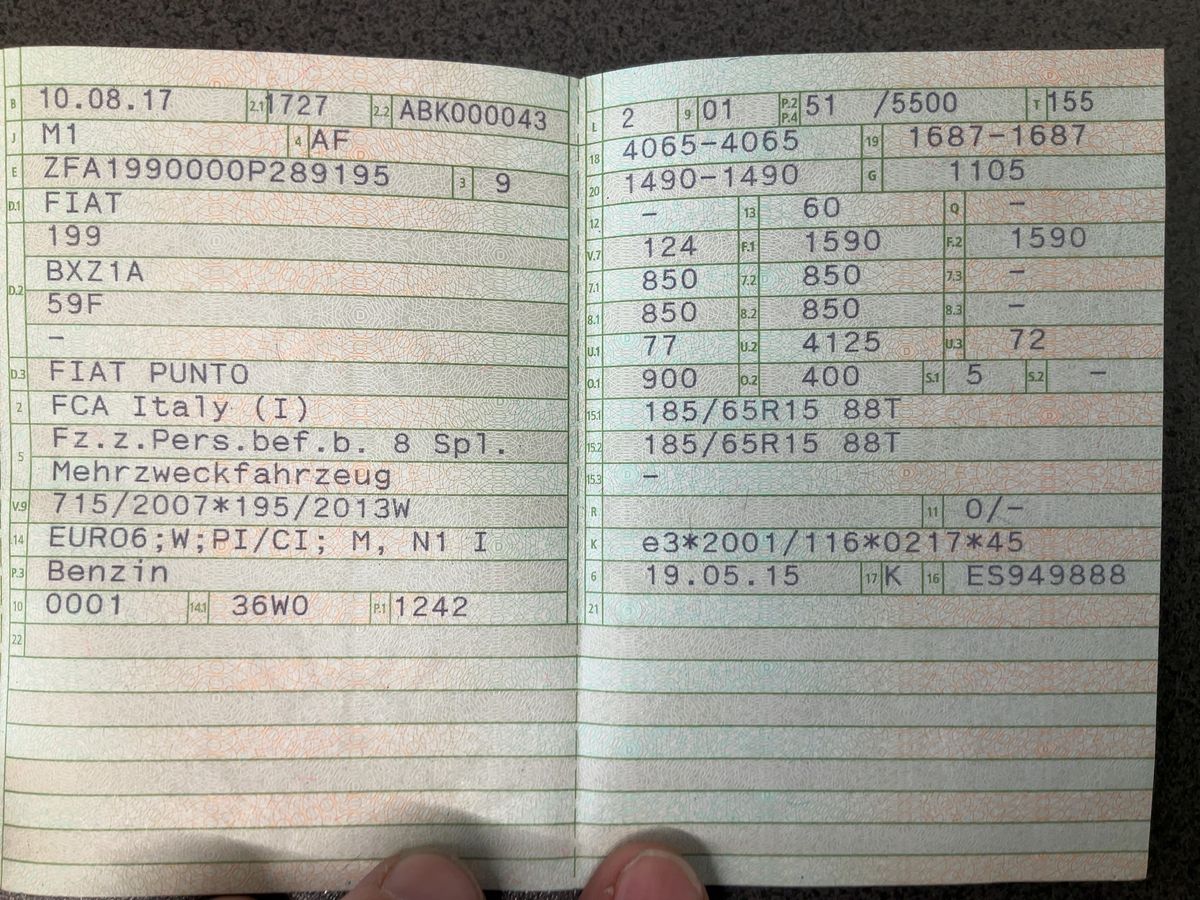 B 10.08.17 2.1 1727 2.2 ABK000043
J M1 4 AF
E ZFA1990000P289195 3 9
D.1 FIAT
199
D.2 BXZ1A
59F
–
D.3 FIAT PUNTO
2 FCA Italy (I)
5 Fz.z.Pers.bef.b. 8 Spl.
Mehrzweckfahrzeug
V.9 715/2007*195/2013W
14 EURO6;W;PI/CI; M, N1 I
P.3 Benzin
10 0001 14.1 36W0 P.1 1242
22
L 2 9 01 P.2 P.4 51 /5500 T 155
18 4065-4065 19 1687-1687
20 1490-1490 G 1105
12 – 13 60 Q –
V.7 124 F.1 1590 F.2 1590
7.1 850 7.2 850 7.3 –
8.1 850 8.2 850 8.3 –
U.1 77 U.2 4125 U.3 72
O.1 900 O.2 400 S.1 5 S.2 –
15.1 185/65R15 88T
15.2 185/65R15 88T
15.3 –
R 11 0/-
K e3*2001/116*0217*45
6 19.05.15 17 K 16 ES949888
21